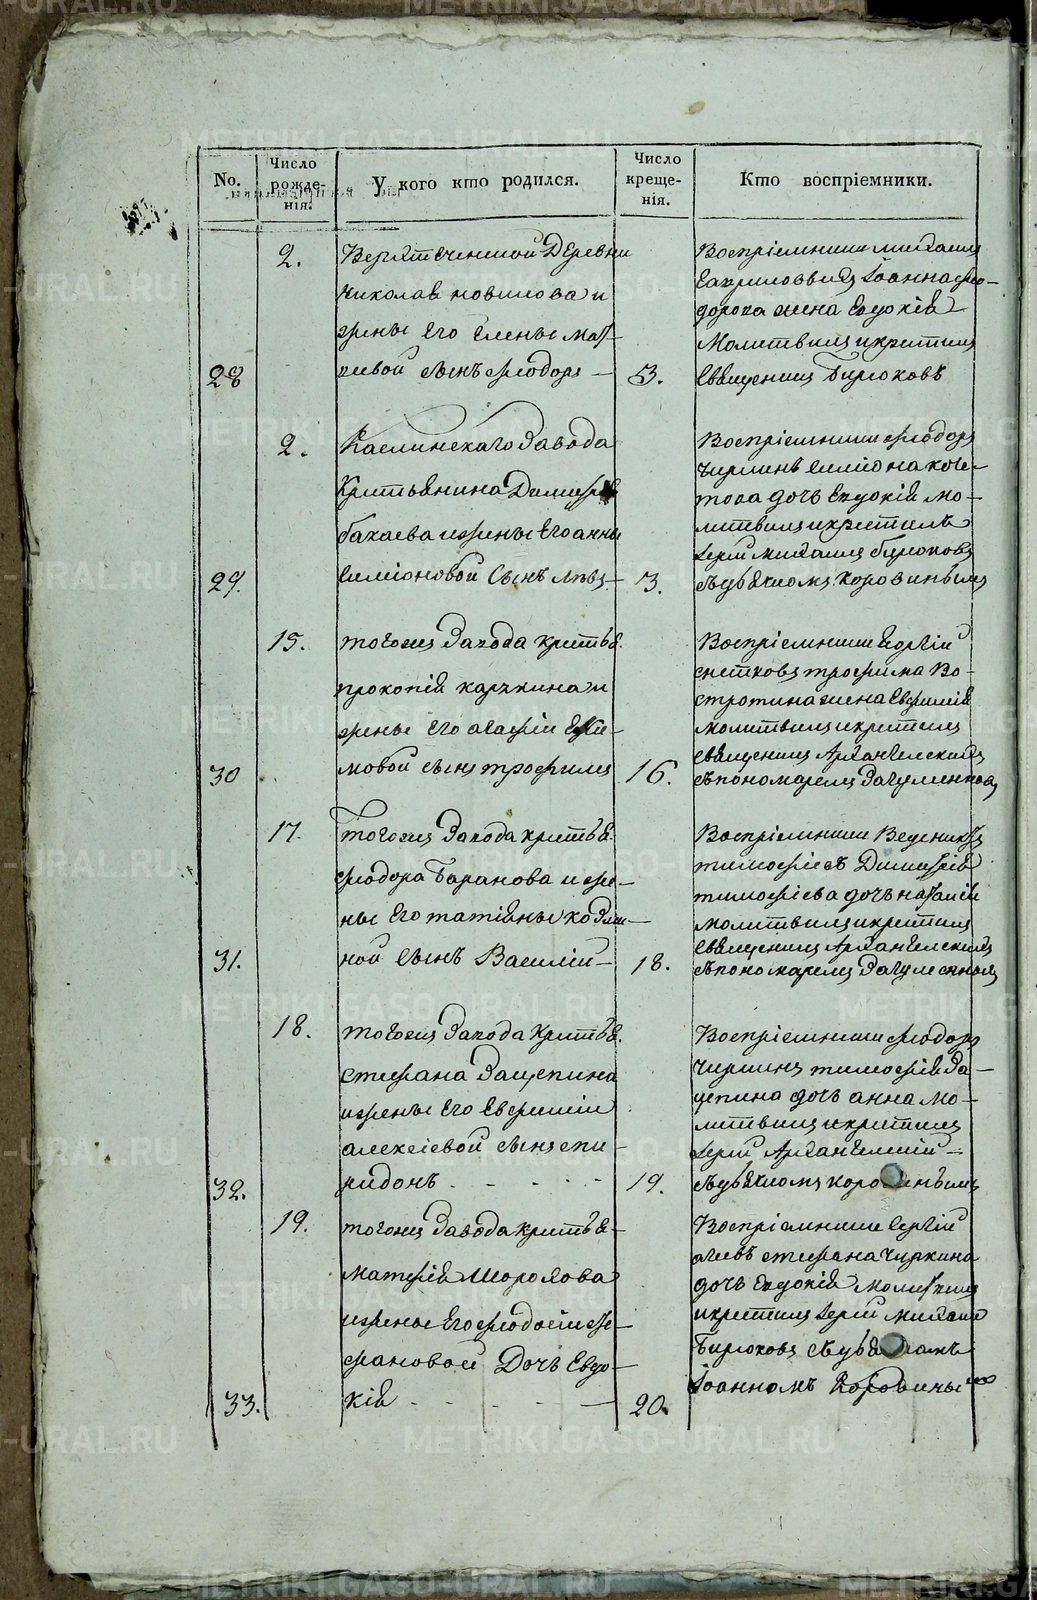 No.
Число рожде-нія.
У кого кто родился.
Число креще-нія.
Кто воспріемники.
2.
деревни
николая новикова и
жены его елены
сынъ феодоръ
28
3.
Воспріемники михаилъ
іоанна фео-
дорова жена евдокія
молитвилъ и крестилъ
священникъ Бирюковъ
2.
Каслинскаго завода
крестьянина димитрія
бахаева и жены его анны
симіоновой сынъ левъ
29.
3.
Воспріемники феодоръ
чиркинъ симіона
дочь евдокія мо-
литвилъ и крестилъ
іерей михаилъ бирюковъ
съ дьякомъ коровинымъ
15.
тогожъ завода крестья
прокопія карпкина и
жены его агафіи еки-
мовой сынъ трофимъ
30
16.
Воспріемники георгій
трофима во-
стротина жена евфимія
молитвилъ и крестилъ
священникъ Архангельский
съ пономаремъ
17.
тогожъ завода крестья
феодора Баранова и же-
ны его татіяны козми-
ной сынъ Василій
31.
18.
Воспріемники
тимофіевъ димитрія
тимофіева дочь наталія
молитвилъ и крестилъ
священникъ Архангельский
съ пономаремъ
18.
тогожъ завода крестья
стефана зацепина
и жены его евфиміи
алексіевой сынъ спи-
ридонъ
32.
19.
Воспріемники феодоръ
чиркинъ тимофія за-
цепина дочь анна мо-
литвилъ и крестилъ
іерей Архангельский
съ дьякомъ коровинымъ
19.
тогожъ завода крестья-
матфія Шорохова
и жены его феодосіи сте-
фановой дочь Евдо-
кія
33.
20.
Воспріемники сергій
стефана чиркина
дочь евдокія молитвилъ
и крестилъ іерей михаилъ
Бирюковъ съ дьякомъ
іоанномъ Коровинымъ
METRIKI.GASO-URAL.RU